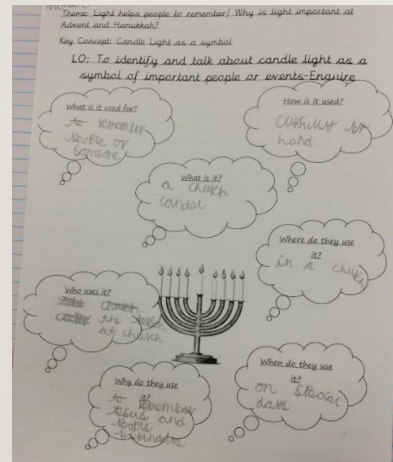 Theme: Light helps people to remember/ Why is light important at
Advent and Hanukkah?
Key Concept: Candle Light as a symbol
LO: To identify and talk about candle light as a
symbol of important people or events-Enquire
What is it used for?
to remember
people or
someone
How is it used?
hand
What is it?
a church
candel
Where do they use
it?
in a church
Who uses it?
the
at church
When do they use
it?
on special
Why do they use
it?
to remember
Jesus and
people